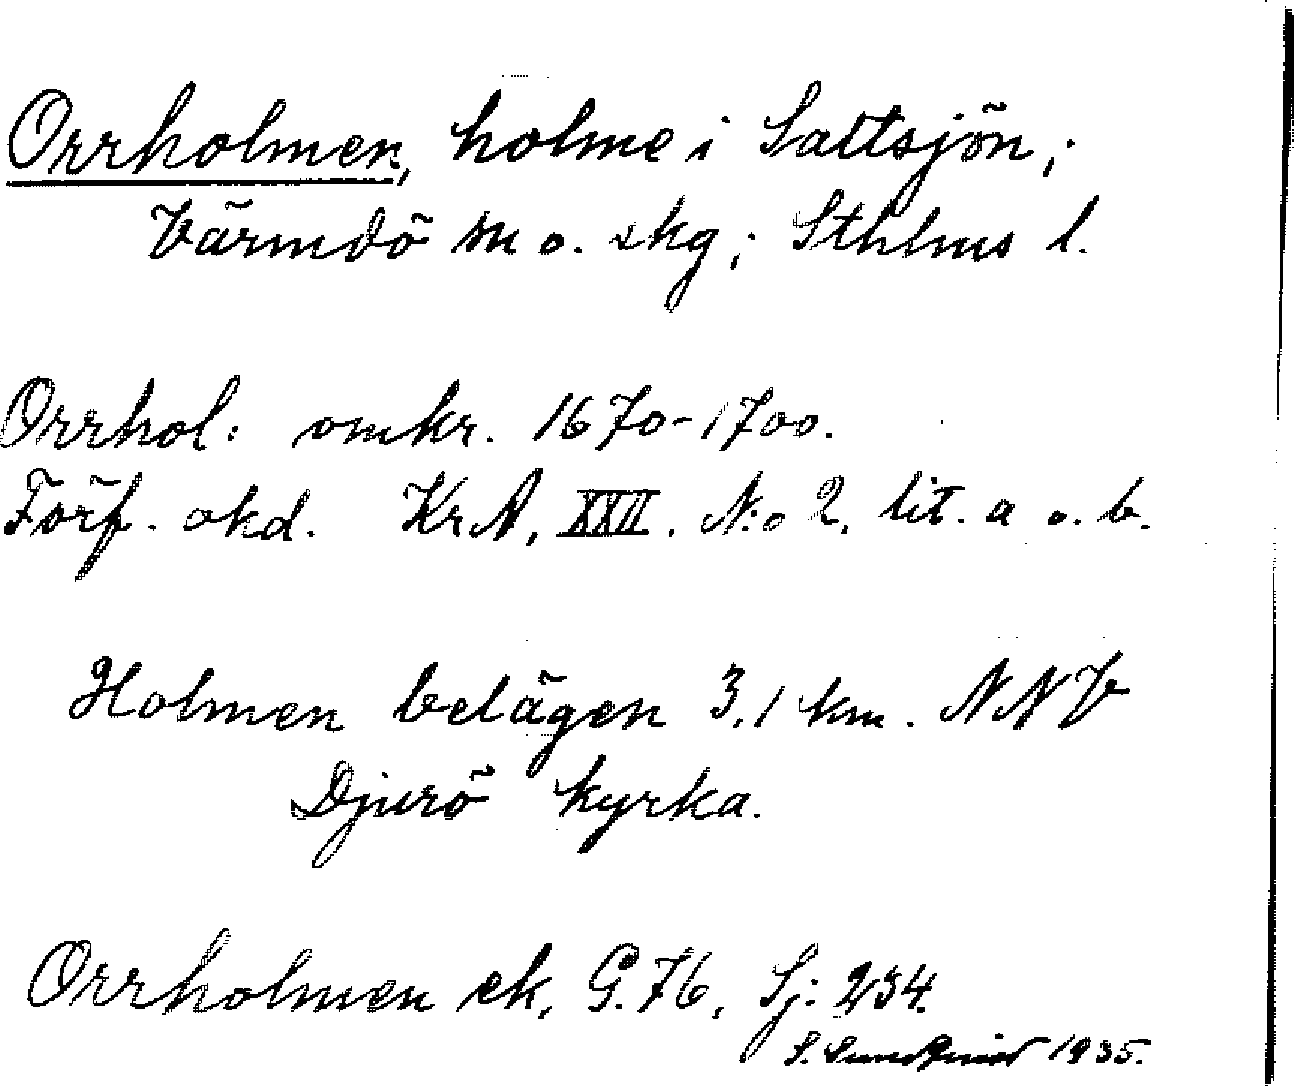 Orrholmen, holme i Saltsjön,;
Värmdö sn o. skg,; Sthlms l.
Orrhol: omkr. 1670-1700.
Förf. okd. KrA, XXII. N:o 2, lit. a o. b.
Holmen belägen 3,1 km. NNV
Djurö kyrka.
Orrholmen ek, G.76, Sj: 234.
S. Sundqvist 1935.